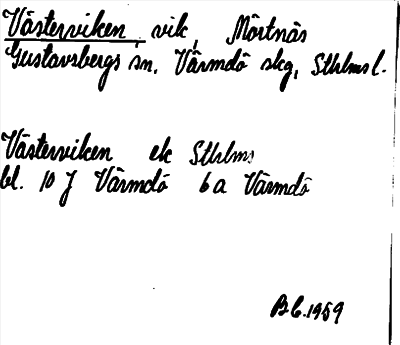 Västerviken, vik, Mörtnäs
Gustavsbergs sn. Värmdö skg, Sthlms l.
Västerviken ek Sthlms
bl. 10 J Värmdö 6 a Värmdö
B 6.1959